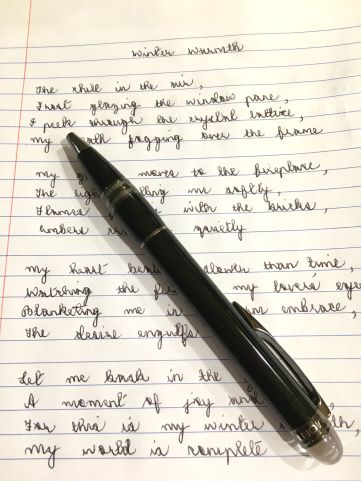 winter warmth
The chill in the air,
Frost glazing the window pane,
I peek through the crystal lattice,
my fogging over the frame
my moves to the fireplace,
The me softly,
Flames with the bricks,
embers quietly
my heart slower than time,
Watching the my lover's eyes
Blanketing me in embrace,
The desire engulfs
Let me bask in the
A moment of joy and
For this is my winter
my world is complete